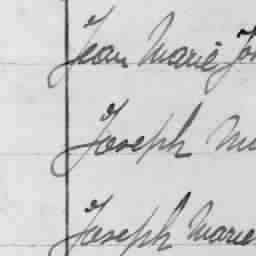 Jean Marie Jos
Joseph Ma
Joseph Marie